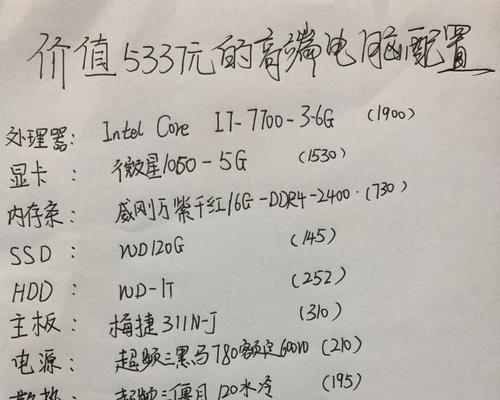 价值5337元的高端电脑配置
处理器: Intel Core I7-7700-3.6G (1900)
显卡: 微星1050-5G (1530)
内存条: 威刚万紫千红16G-DDR4-2400. (730)
SSD: WD120G (145)
HDD: WD-1T (252)
主板: 梅捷311N-J (310)
电源: 超频三黑马780额定600W (210)
散热: 超频三偃月120水冷 (195)